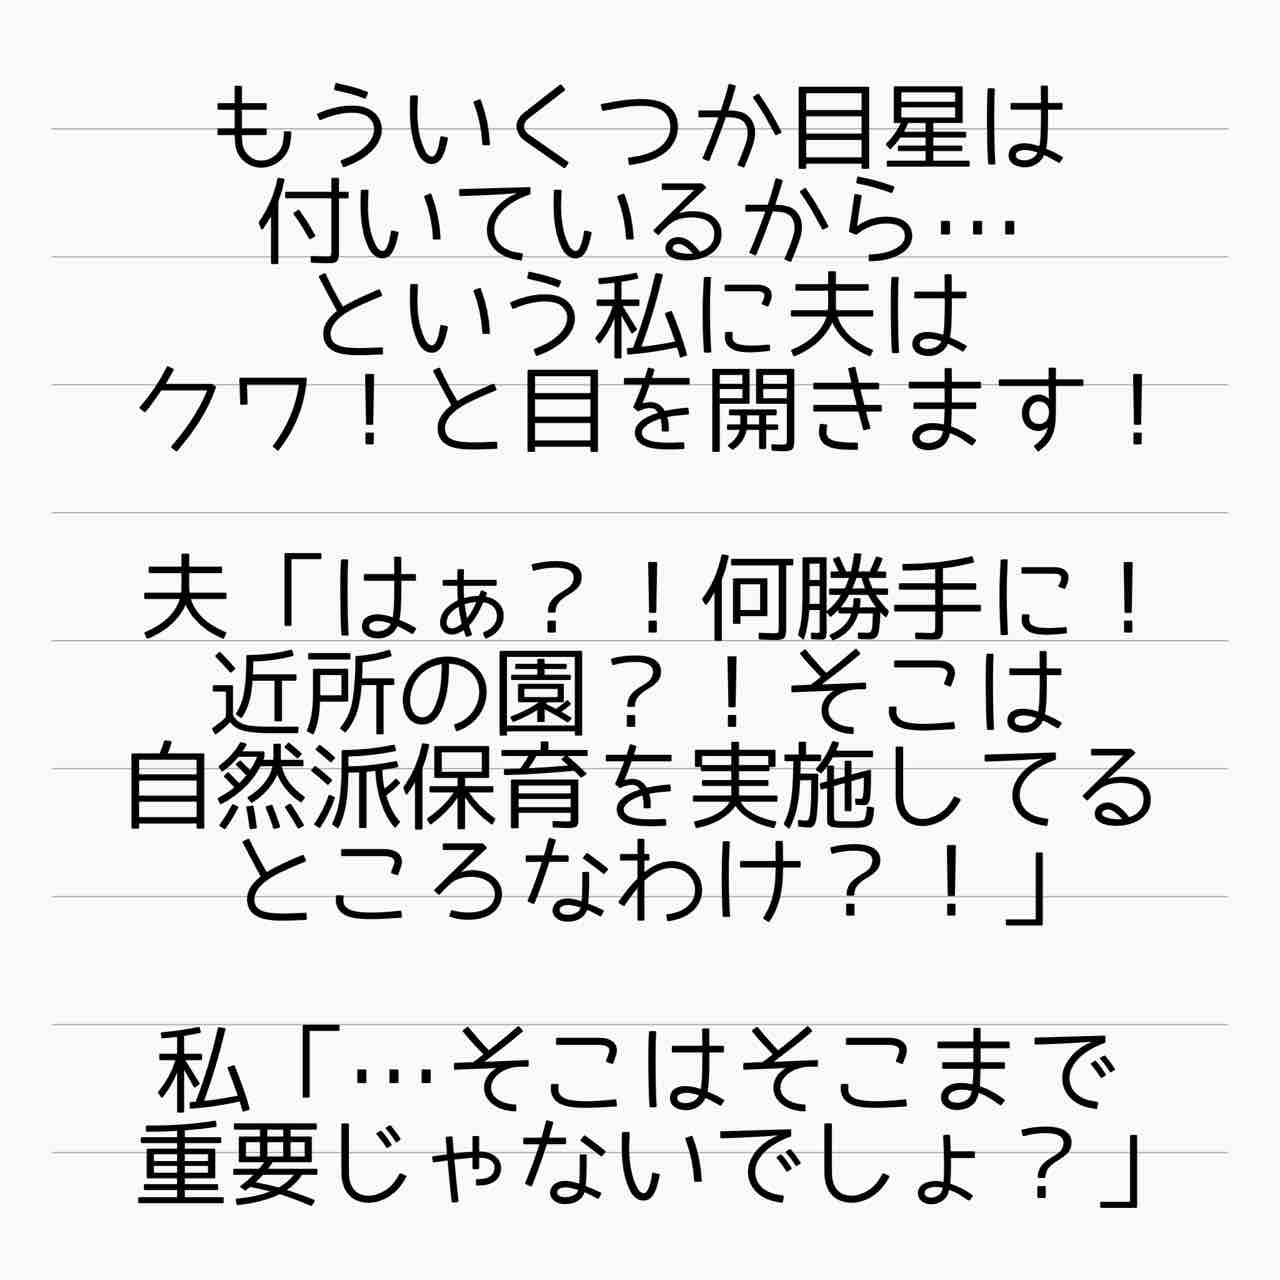 もういくつか目星は
付いているから…
という私に夫は
クワ！と目を開きます！
夫「はぁ？！何勝手に！
近所の園？！そこは
自然派保育を実施してる
ところなわけ？！」
私「…そこはそこまで
重要じゃないでしょ？」